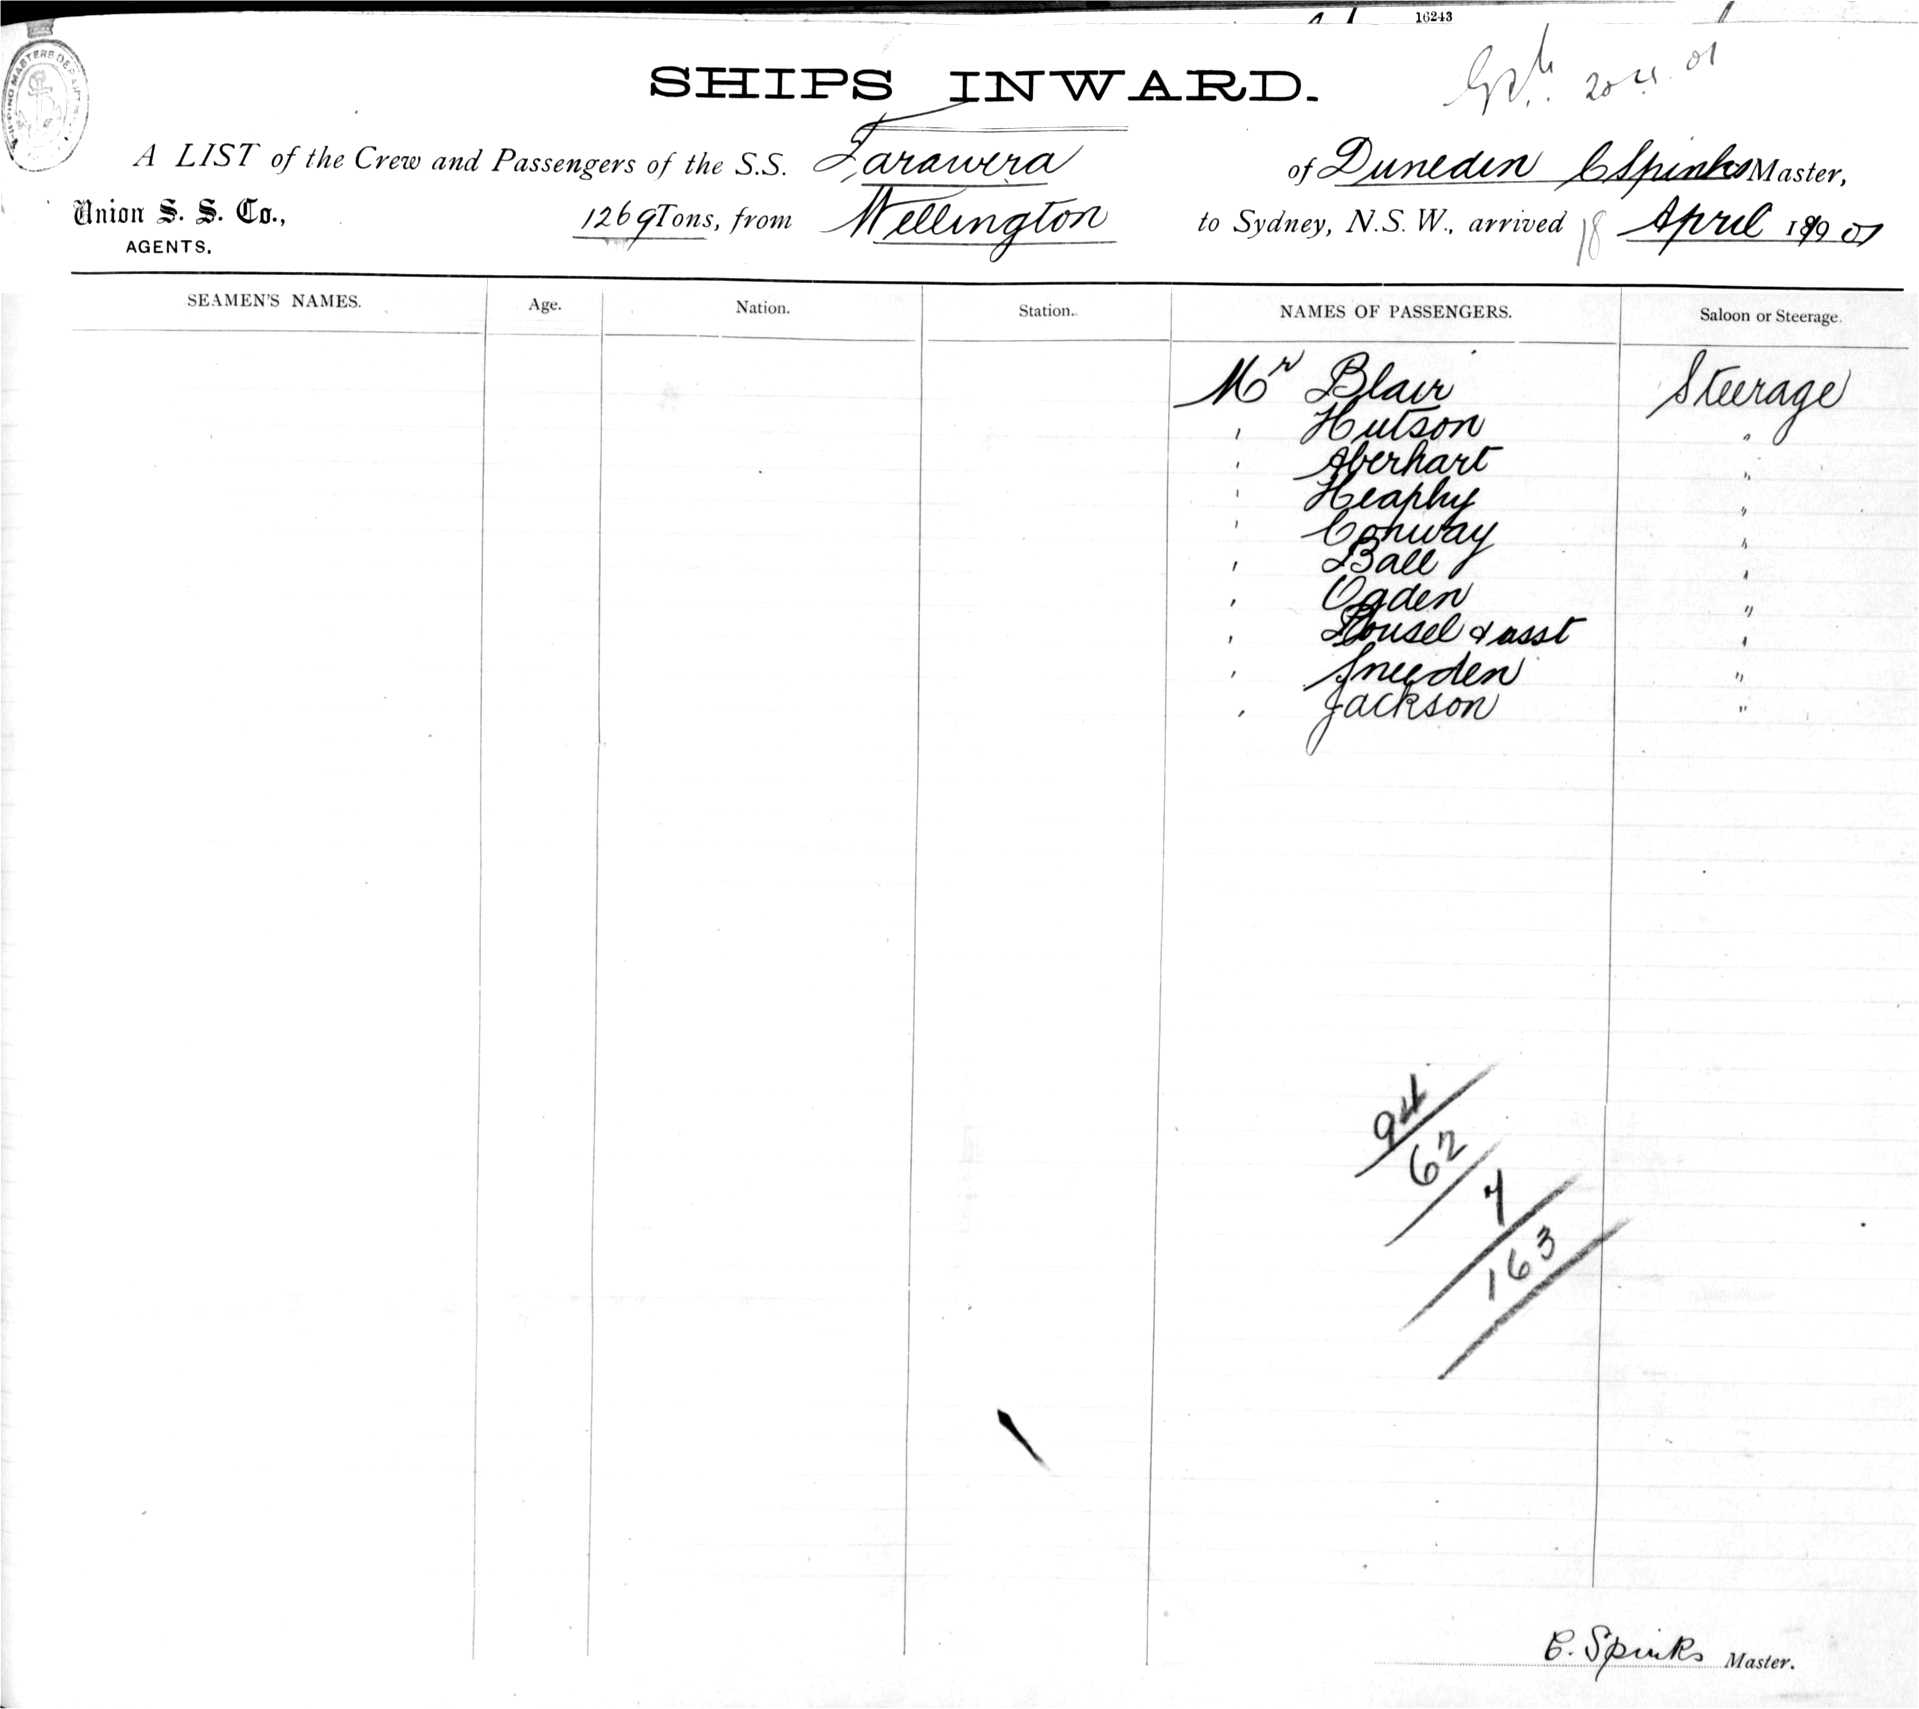 16243
SHIPS INWARD.
20 4 01
A LIST of the Crew and Passengers of the S.S. Tarawera of Duneden C Spinks Master,
Union S. S. Co., 1269 Tons, from Wellington to Sydney, N.S.W., arrived 18 April 1901
AGENTS.
SEAMEN'S NAMES. Age. Nation. Station. NAMES OF PASSENGERS. Saloon or Steerage.
Mr Blair Steerage
" Hutson "
" Aberhart "
" Heaphy "
" Conway "
" Ball "
" Ogden "
" & asst "
" Sneeden "
" Jackson "
94
62
7
163
C. Spinks Master.